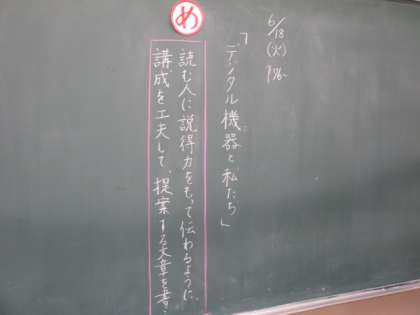 6/18
(火)
「デジタル機器と私たち」
め
読む人に説得力をもって伝わるように、
構成を工夫して、提案する文章を書